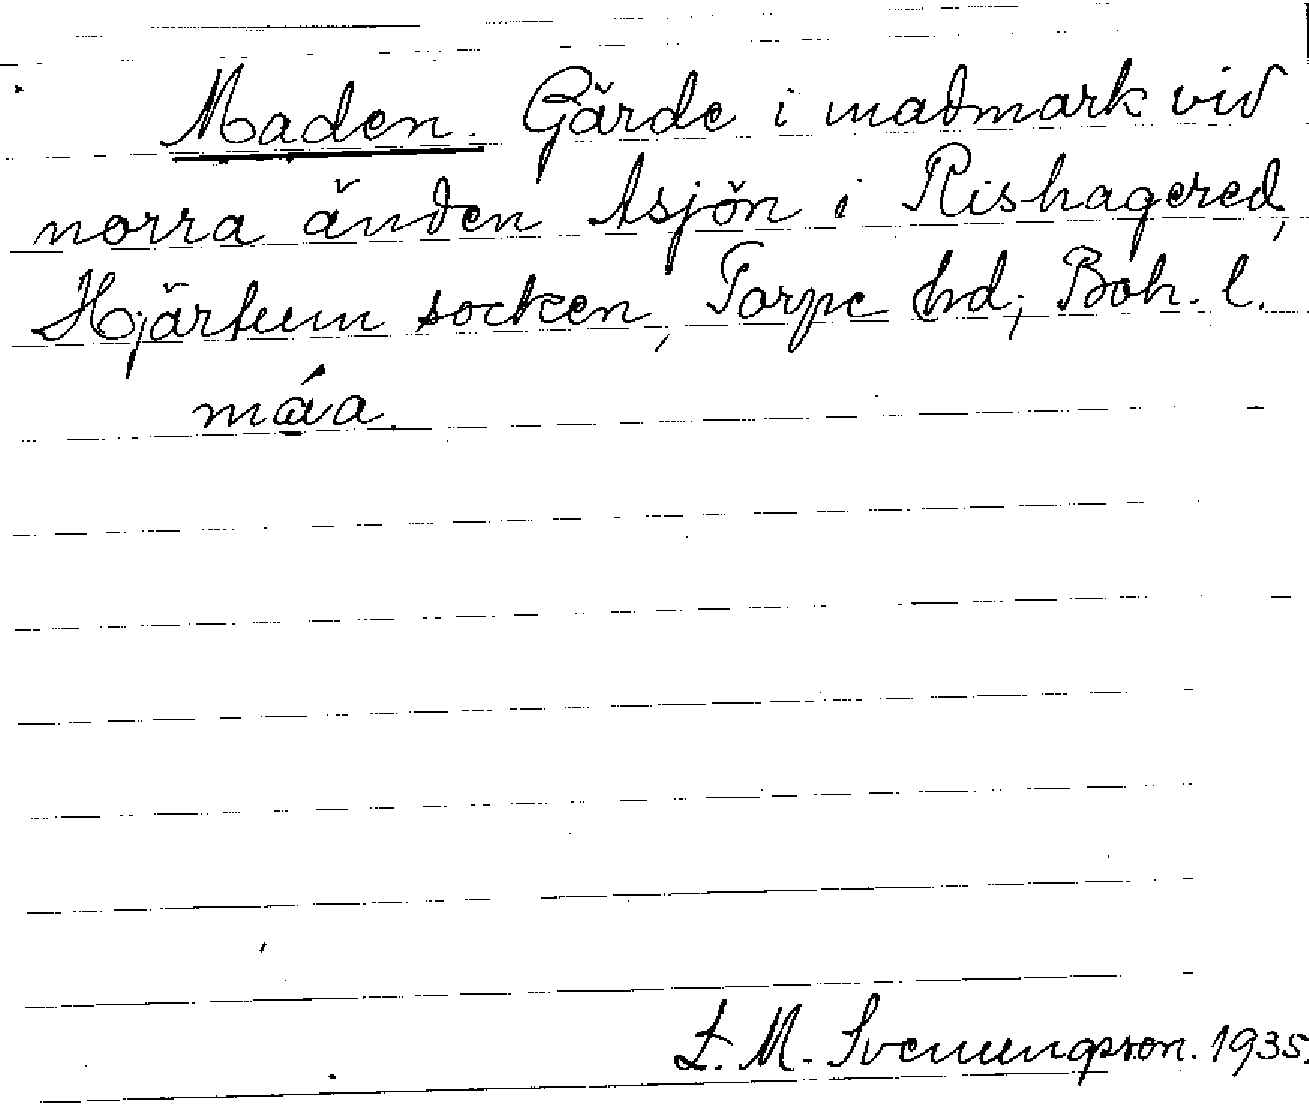 Maden. Gärde i madmark vid
norra änden Åsjön i Rishagered,
Hjärtum socken, Torpe hd, Boh. l.
máa.
L. M. Svenungsson. 1935.